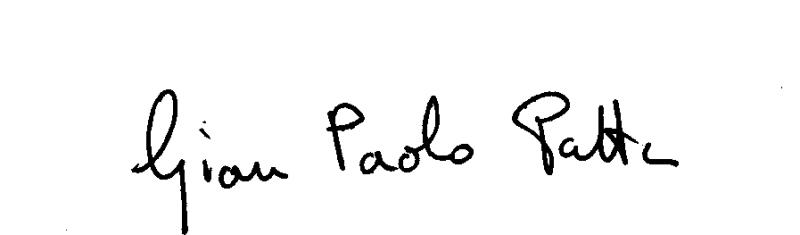 Gian Paolo Patta